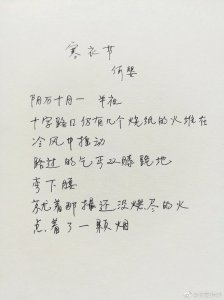 寒衣节
何婴
阴历十月一 半夜
十字路口仍有几个烧纸的火堆在
冷风中摇动
路过的乞丐双膝跪地
弯下腰
就着那撮还没燃尽的火
点着了一颗烟